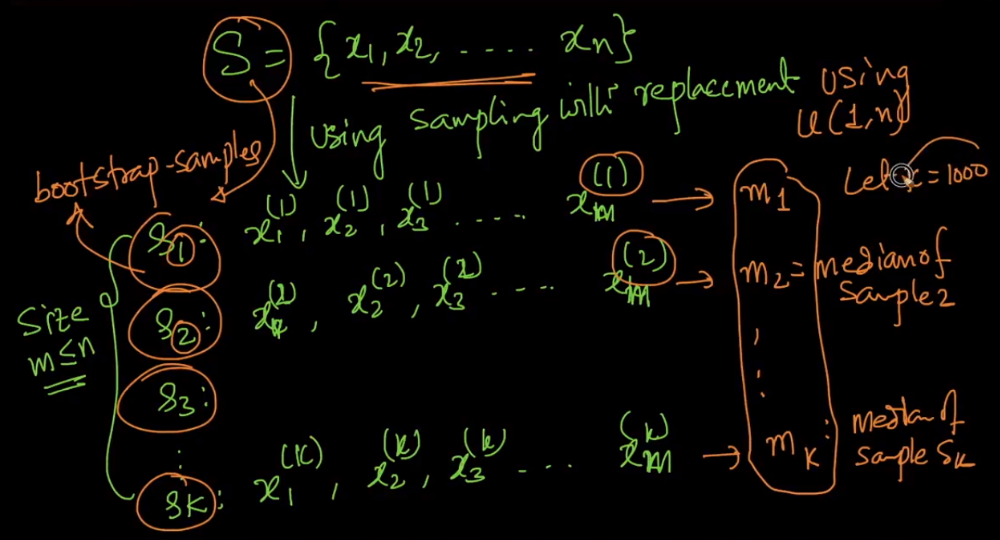 S = {x₁, x₂, ..... xₙ}
using sampling with replacement using
U(1,n)
bootstrap-samples
Let k = 1000
S₁: x₁⁽¹⁾, x₂⁽¹⁾, x₃⁽¹⁾ ..... xₘ⁽¹⁾ → m₁
S₂: x₁⁽²⁾, x₂⁽²⁾, x₃⁽²⁾ .... xₘ⁽²⁾ → m₂ = median of
sample 2
size
m ≤ n
S₃:
⋮
Sₖ: x₁⁽ᵏ⁾, x₂⁽ᵏ⁾, x₃⁽ᵏ⁾ ... xₘ⁽ᵏ⁾ → mₖ: median of
sample Sₖ